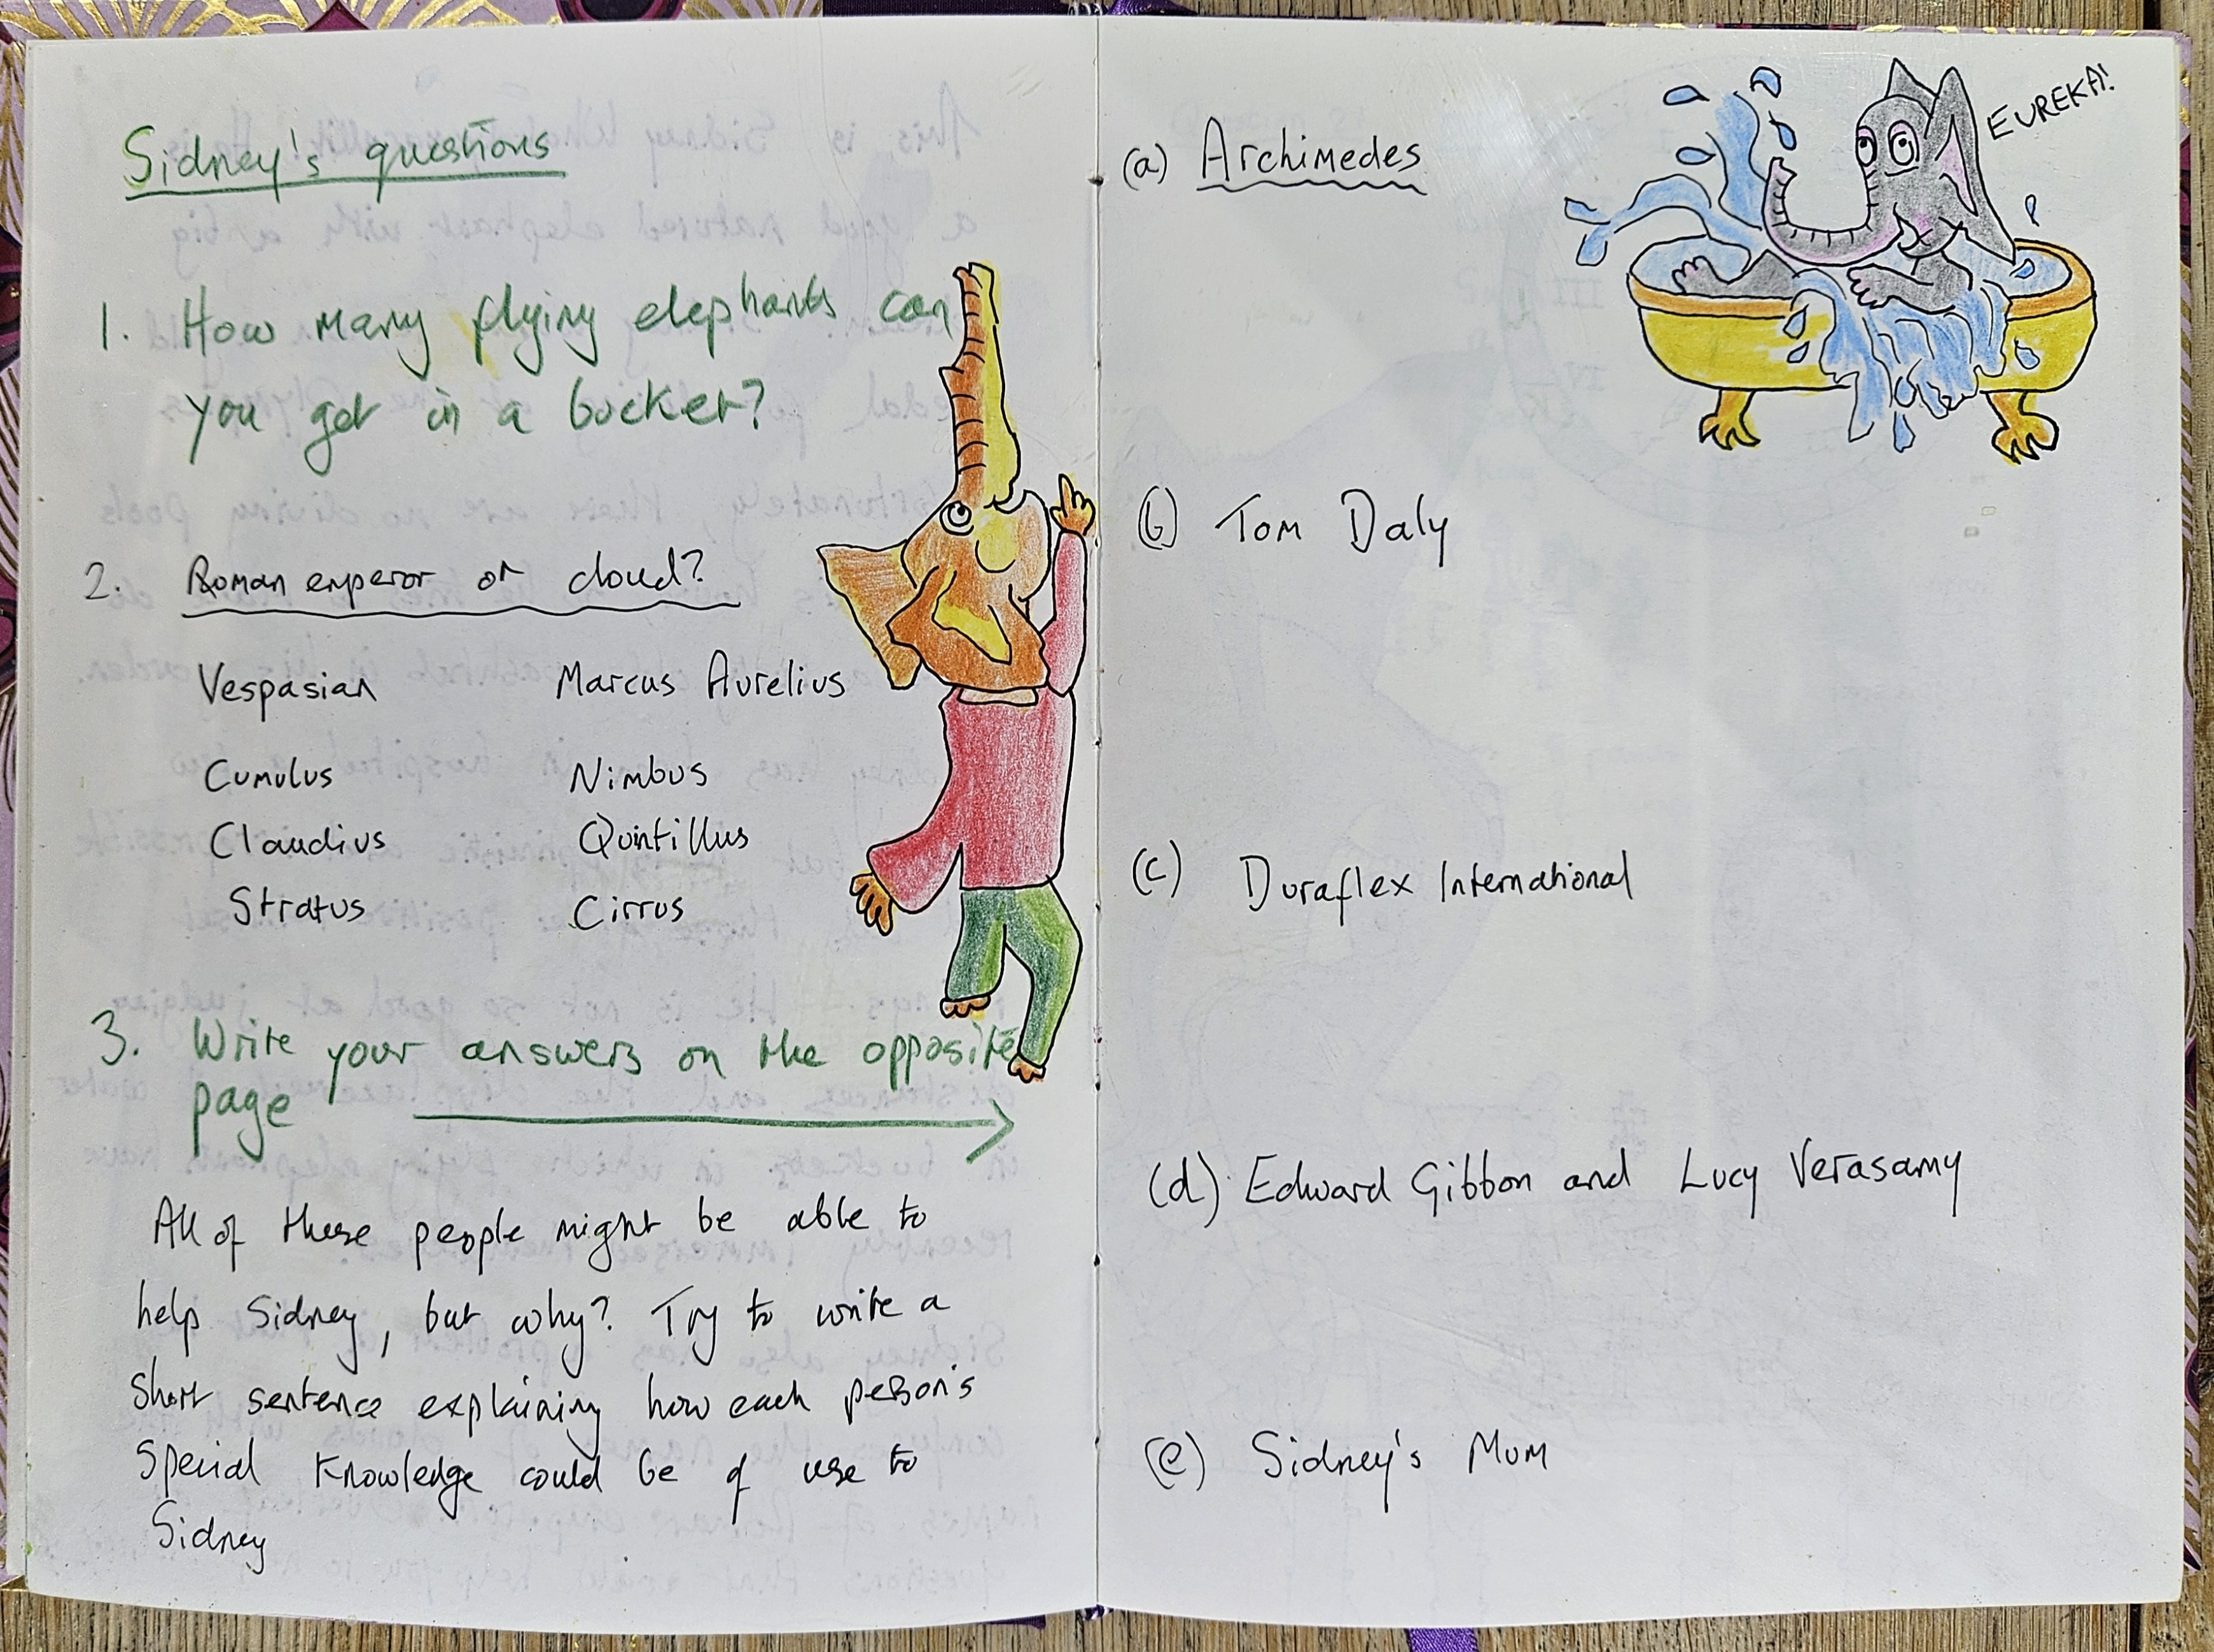 Sidney's questions
1. How many flying elephants can
you get in a bucket?
2. Roman emperor or cloud?
Vespasian Marcus Aurelius
Cumulus Nimbus
Claudius Quintillus
Stratus Cirrus
3. Write your answers on the opposite
page
All of these people might be able to
help Sidney, but why? Try to write a
short sentence explaining how each person's
special knowledge could be of use to
Sidney
(a) Archimedes
EUREKA!
(b) Tom Daly
(c) Duraflex International
(d) Edward Gibbon and Lucy Verasamy
(e) Sidney's Mum